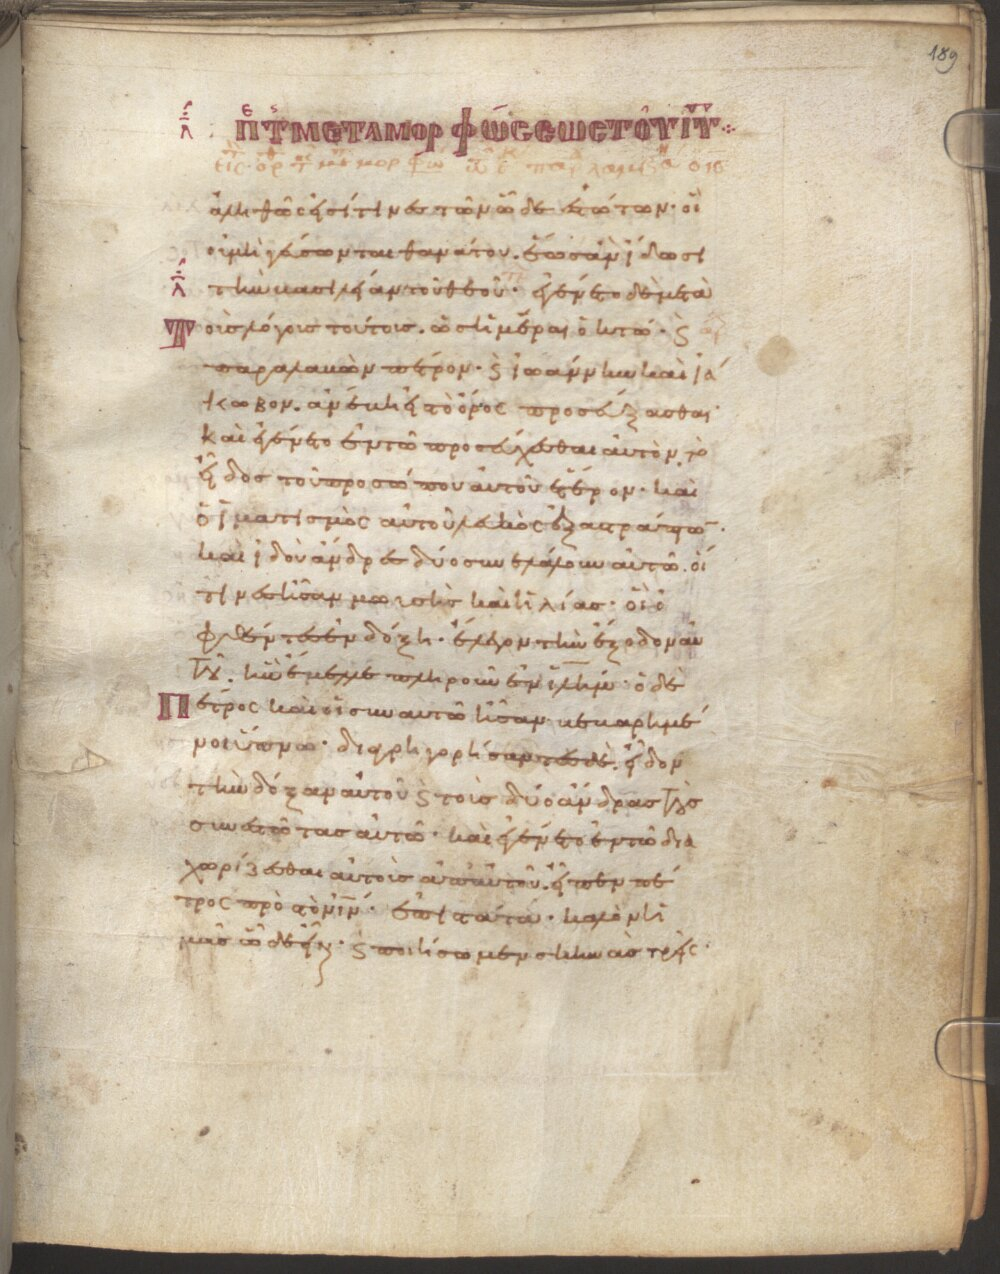 189
π̅ε̅ τ̅ ΜΕΤΑΜΟΡΦΏΣΕΩΣ ΤΟΥ Ι̅Υ̅
ἀληθῶς εἰσί τινες τῶν ὧδε ἑστώτων· οἳ
οὐ μὴ γεύσωνται θανάτου. ἕως ἂν ἴδωσι
τὴν βασιλείαν τοῦ θεοῦ· ἐγένετο δὲ μετὰ
Τοὺς λόγους τούτους. ὡσεὶ ἡμέραι ὀκτώ· ϛ
παραλαβὼν πέτρον· ϛ ἰωάννην καὶ ἰά
κωβον. ἀνέβη εἰς τὸ ὄρος προσεύξασθαι·
καὶ ἐγένετο ἐν τῶ προσεύχεσθαι αὐτὸν, τὸ
εἶδος τοῦ προσώπου αὐτοῦ ἕτερον· καὶ
ὁ ἱματισμὸς αὐτοῦ λευκὸς ἐξαστράπτω̅·
καὶ ἰδοὺ ἄνδρες δύο συνελάλουν αὐτῶ. οἵ
τινες ἦσαν μωυσῆς καὶ ἠλίας· οἳ ὀ
φθέντες ἐν δόξη· ἔλεγον τὴν ἔξοδον αὐ
τοῦ. ἣν ἔμελλε πληροῦν ἐν ἱ̅λ̅η̅μ̅· ὁ δὲ
Πέτρος καὶ οἱ σὺν αὐτῶ ἦσαν βεβαρημέ
νοι ὕπνω· διαγρηγορήσαντες δὲ, εἶδον
τὴν δόξαν αὐτοῦ ϛ τοὺς δύο ἄνδρας τοὺς
συνεστῶτας αὐτῶ· καὶ ἐγένετο ἐν τῶ δια
χωρίζεσθαι αὐτοὺς ἀπ' αὐτοῦ. εἶπεν πέ
τρος πρὸς τὸν ι̅ν̅· ἐπιστάτα· καλόν ἡ
μᾶς ὧδε εἶναι· ϛ ποιήσωμεν σκηνὰς τρεῖς·